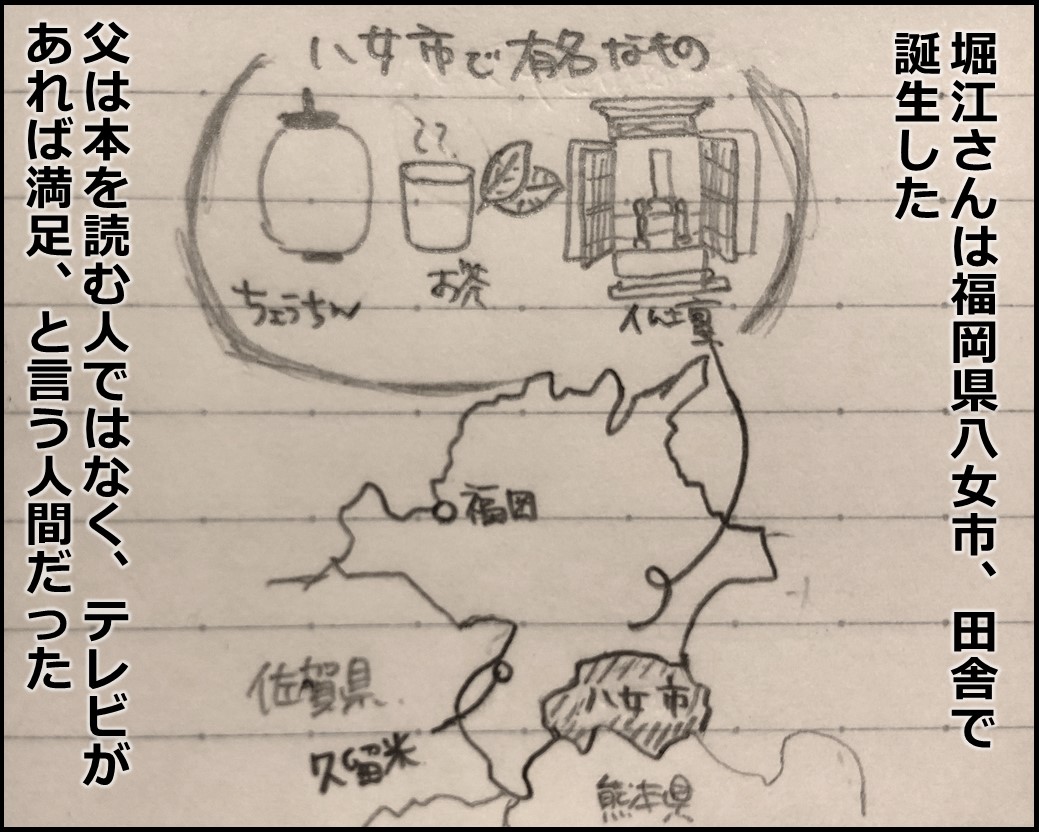 堀江さんは福岡県八女市、田舎で
誕生した
八女市で有名なもの
仏壇
お茶
ちょうちん
福岡
佐賀県
久留米
八女市
熊本県
父は本を読む人ではなく、テレビが
あれば満足、と言う人間だった